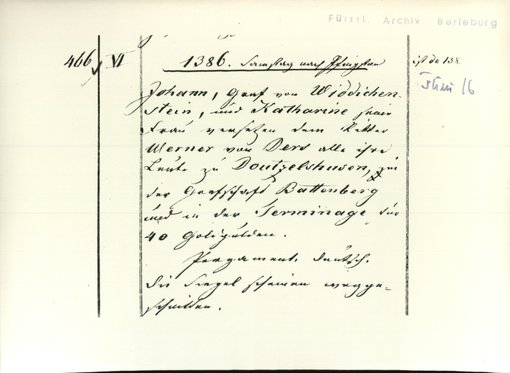 Fürstl. Archiv Berleburg
466 VI 1386. Samstag nach Pfingsten
ist da 138.
Johann, Graf von Widdichen-
stein, und Katharine seine
Frau versetzen dem Ritter
Werner von Ders alle ihre
Leute zu Doutzelshusen, in
der Grafschaft Battenberg
und in der Terminage für
40 Goldgulden.
Pergament. deutsch.
Die Siegel scheinen wegge-
schnitten.